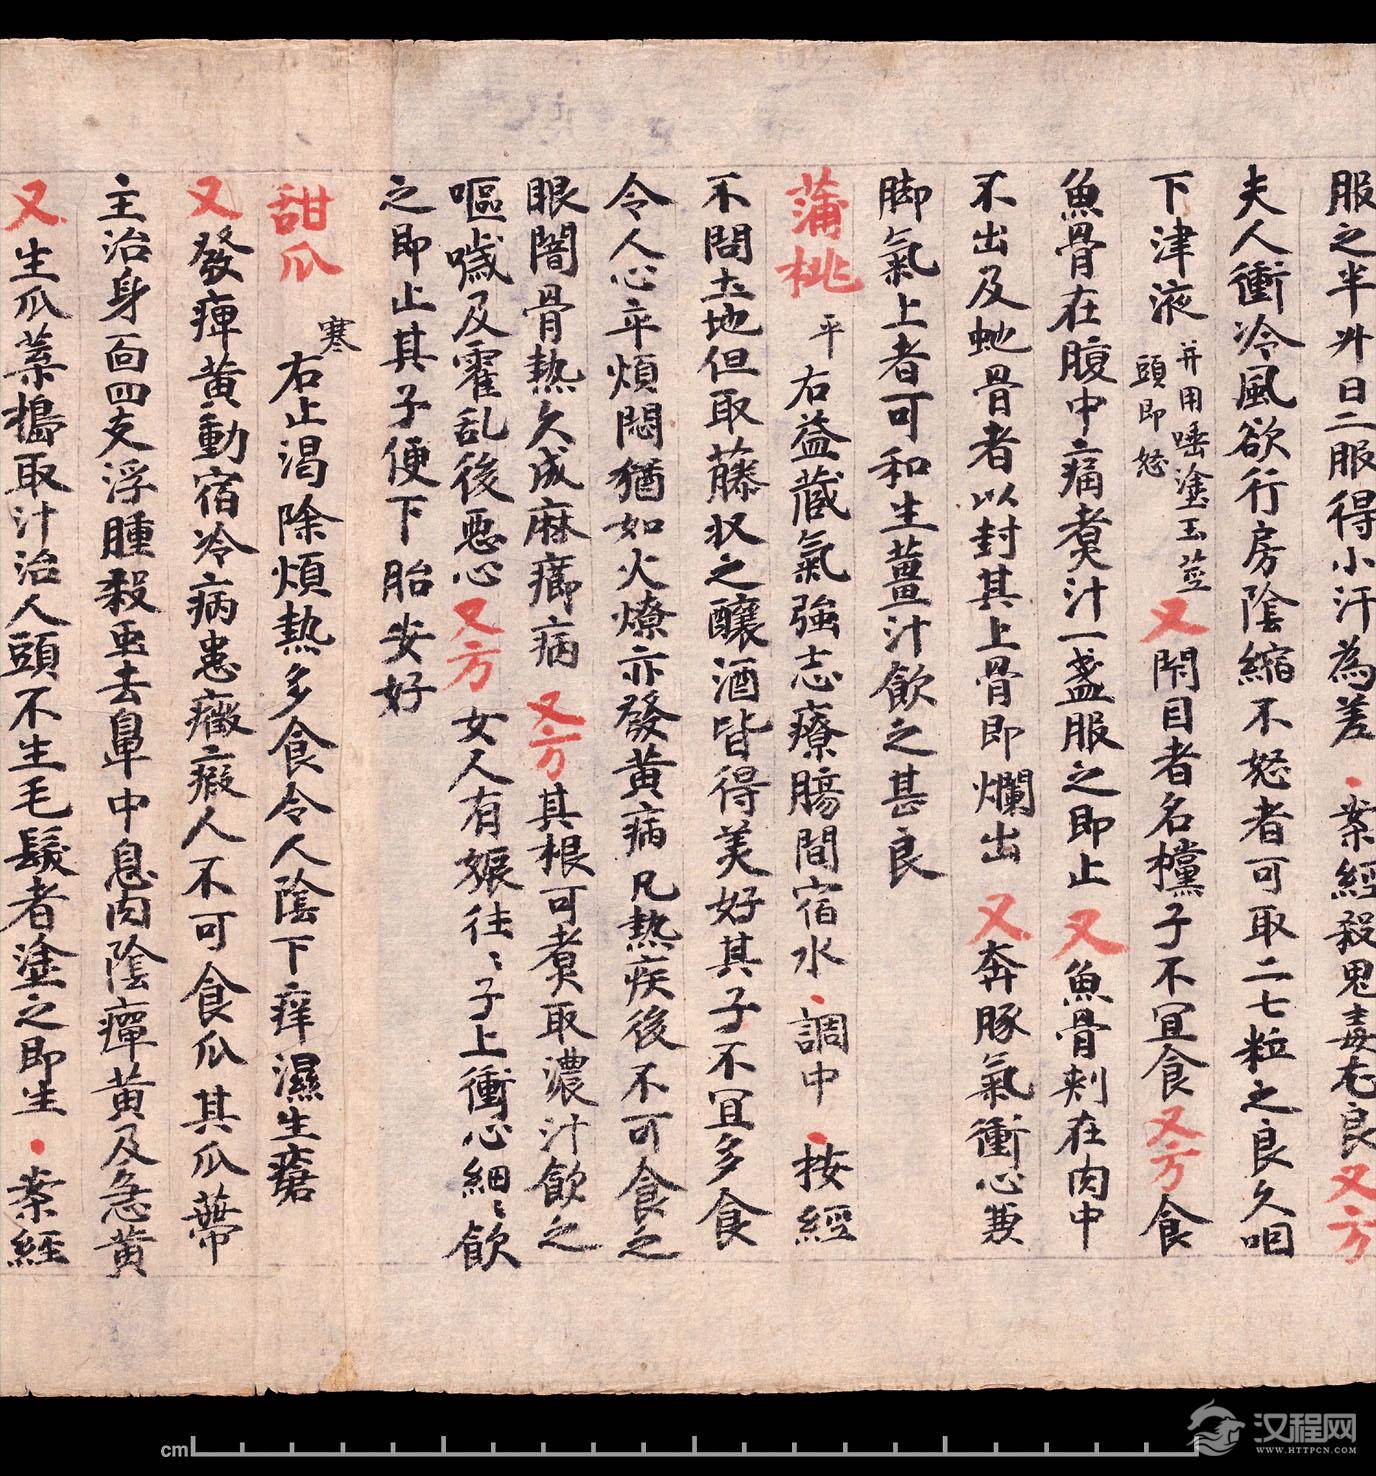 服之半升日二服得小汗為差 · 案經殺鬼毒尤良又方
夫人衝冷風欲行房陰縮不怒者可取二七粒之良久咽
下津液并用唾塗玉莖頭即怒又閇目者名欓子不宜食又方食
魚骨在腹中痛煑汁一盞服之即止又魚骨刾在肉中
不出及虵骨者以封其上骨即爛出又奔豚氣衝心兼
脚氣上者可和生薑汁飲之甚良
蒲桃平右益蔵氣強志療腸間宿水 · 調中 · 按經
不問土地但取藤収之釀酒皆得美好其子不宜多食
令人心卒煩悶猶如火燎亦發黄病凡熱疾後不可食之
眼闇骨熱久成麻癤病又方其根可煑取濃汁飲之
嘔噦及霍乱後悪心又方女人有娠往〻子上衝心細〻飲
之即止其子便下胎安好
甜瓜寒右止渴除煩熱多食令人陰下痒濕生瘡
又發瘅黄動宿冷病患癥瘕人不可食瓜其瓜蔕
主治身面四支浮腫殺蛊去鼻中息肉陰瘅黄及急黄
又生瓜葉搗取汁治人頭不生毛髮者塗之即生 · 案經
cm
汉程网
WWW.HTTPCN.COM